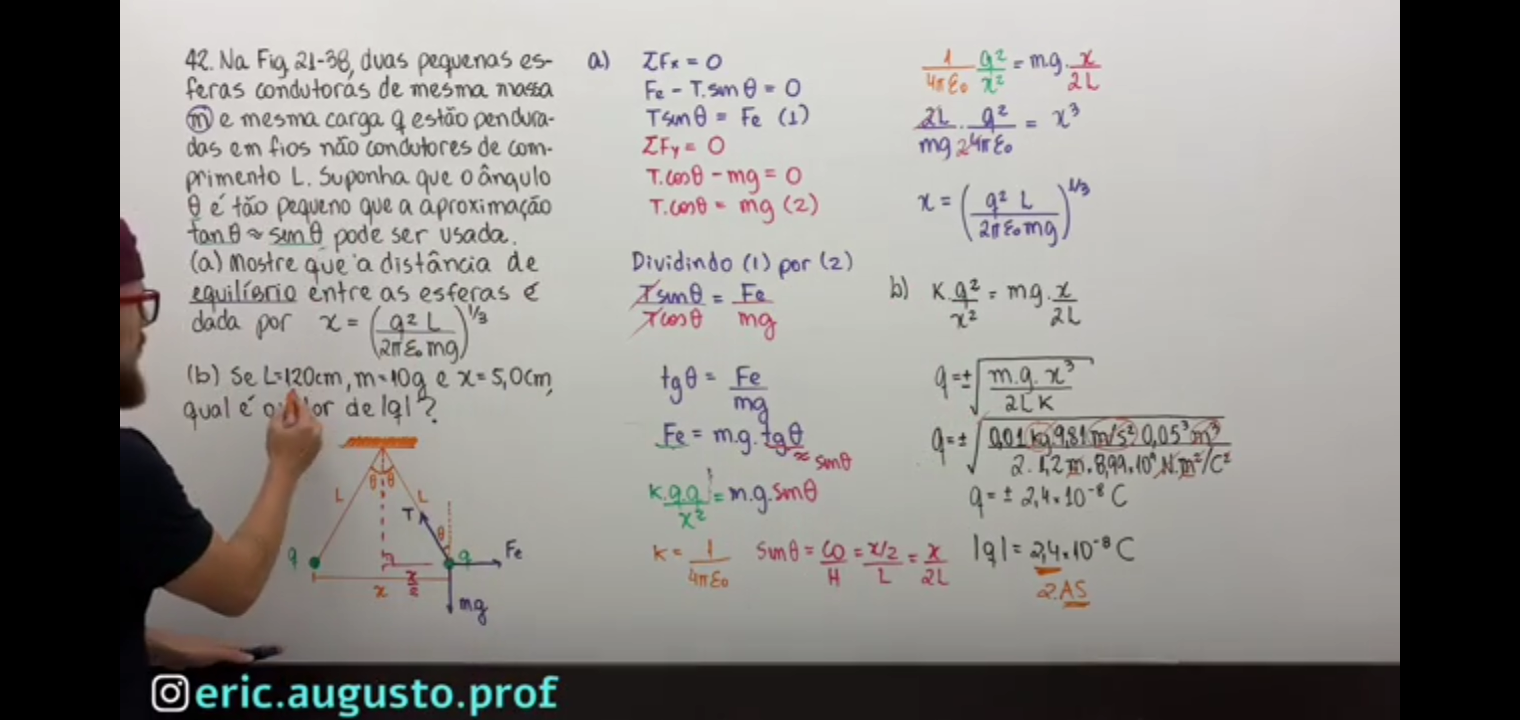 42. Na Fig. 21-38, duas pequenas es-
feras condutoras de mesma massa
m e mesma carga q estão pendura-
das em fios não condutores de com-
primento L. Suponha que o ângulo
θ é tão pequeno que a aproximação
tanθ ≈ senθ pode ser usada.
(a) Mostre que a distância de
equilíbrio entre as esferas é
dada por x = (q² L / 2πε₀mg)^1/3
(b) Se L=120cm, m=10g e x=5,0cm,
qual é o de |q|?
θ θ
L L
T
θ
q q Fe
x/2
x
mg
a) ΣFx = 0
Fe - T.sinθ = 0
Tsinθ = Fe (1)
ΣFy = 0
T.cosθ - mg = 0
T.cosθ = mg (2)
Dividindo (1) por (2)
Tsinθ / Tcosθ = Fe / mg
tgθ = Fe / mg
Fe = m.g.tgθ
≈ sinθ
K.q.q / x² = m.g.sinθ
K = 1 / 4πε₀
sinθ = CO / H = x/2 / L = x / 2L
1 / 4πε₀ q² / x² = m.g. x / 2L
2L / mg . q² / 24πε₀ = x³
x = (q² L / 2πε₀mg)^1/3
b) K. q² / x² = mg. x / 2L
q = ± √(m.g.x³ / 2LK)
q = ± √(0,01kg.9,81m/s².0,05³m³ / 2.1,2m.8,99.10⁹N.m²/C²)
q = ± 2,4.10⁻⁸ C
|q| = 2,4.10⁻⁸ C
2.AS
eric.augusto.prof